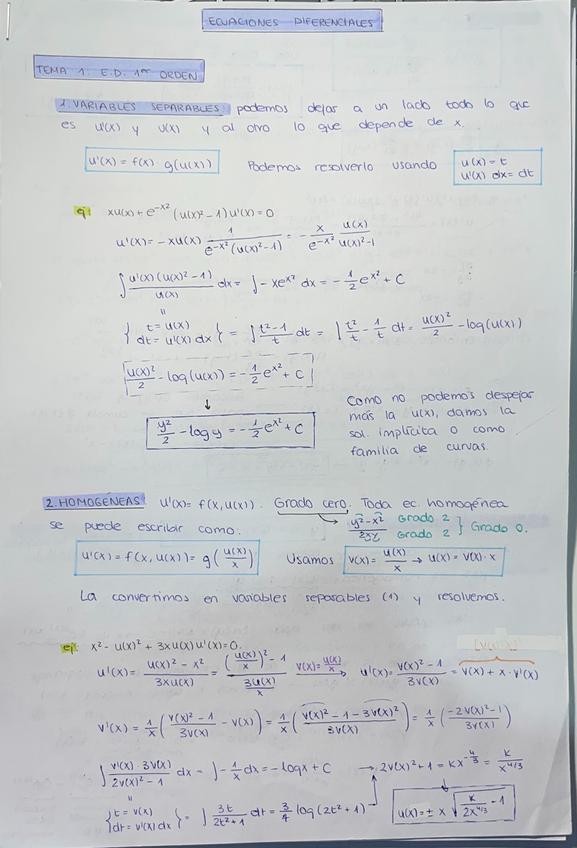 ECUACIONES DIFERENCIALES
TEMA 1: E.D. 1er ORDEN
1. VARIABLES SEPARABLES podemos dejar a un lado todo lo que
es u'(x) y u(x) y al otro lo que depende de x.
u'(x) = f(x) · g(u(x)) Podemos resolverlo usando u(x) = t
u'(x) dx = dt
ej: xu(x) + e^{-x²} (u(x)² - 1) u'(x) = 0
u'(x) = -xu(x) 1/(e^{-x²}(u(x)² - 1)) = - x/e^{-x²} u(x)/(u(x)² - 1)
∫ u'(x)(u(x)² - 1)/u(x) dx = ∫ -xe^{x²} dx = - 1/2 e^{x²} + C
=
{ t = u(x)
dt = u'(x) dx } = ∫ (t² - 1)/t dt = ∫ t²/t - 1/t dt = u(x)²/2 - log(u(x))
u(x)²/2 - log(u(x)) = - 1/2 e^{x²} + C
↓
y²/2 - log y = - 1/2 e^{x²} + C
Como no podemos despejar
más la u(x), damos la
sol. implícita o como
familia de curvas.
2. HOMOGÉNEAS u'(x) = f(x, u(x)). Grado cero. Toda ec. homogénea
se puede escribir como: → (y² - x²)/2xy Grado 2 Grado 2 } Grado 0.
u'(x) = f(x, u(x)) = g(u(x)/x) Usamos v(x) = u(x)/x → u(x) = v(x) · x
La convertimos en variables separables (1) y resolvemos.
ej: x² - u(x)² + 3xu(x)u'(x) = 0
u'(x) = (u(x)² - x²)/3xu(x) = ((u(x)/x)² - 1)/(3u(x)/x) v(x) = u(x)/x → u'(x) = (v(x)² - 1)/3v(x) = v(x) + x · v'(x)
v'(x) = 1/x ((v(x)² - 1)/3v(x) - v(x)) = 1/x ((v(x)² - 1 - 3v(x)²)/3v(x)) = 1/x ((-2v(x)² - 1)/3v(x))
∫ v'(x) · 3v(x)/(2v(x)² - 1) dx = ∫ - 1/x dx = -log x + C → 2v(x)² + 1 = Kx^{-4/3} = K/x^{4/3}
=
{ t = v(x)
dt = v'(x) dx } = ∫ 3t/(2t² + 1) dt = 3/4 log(2t² + 1)
u(x) = ± x √(K/2x^{4/3} - 1)